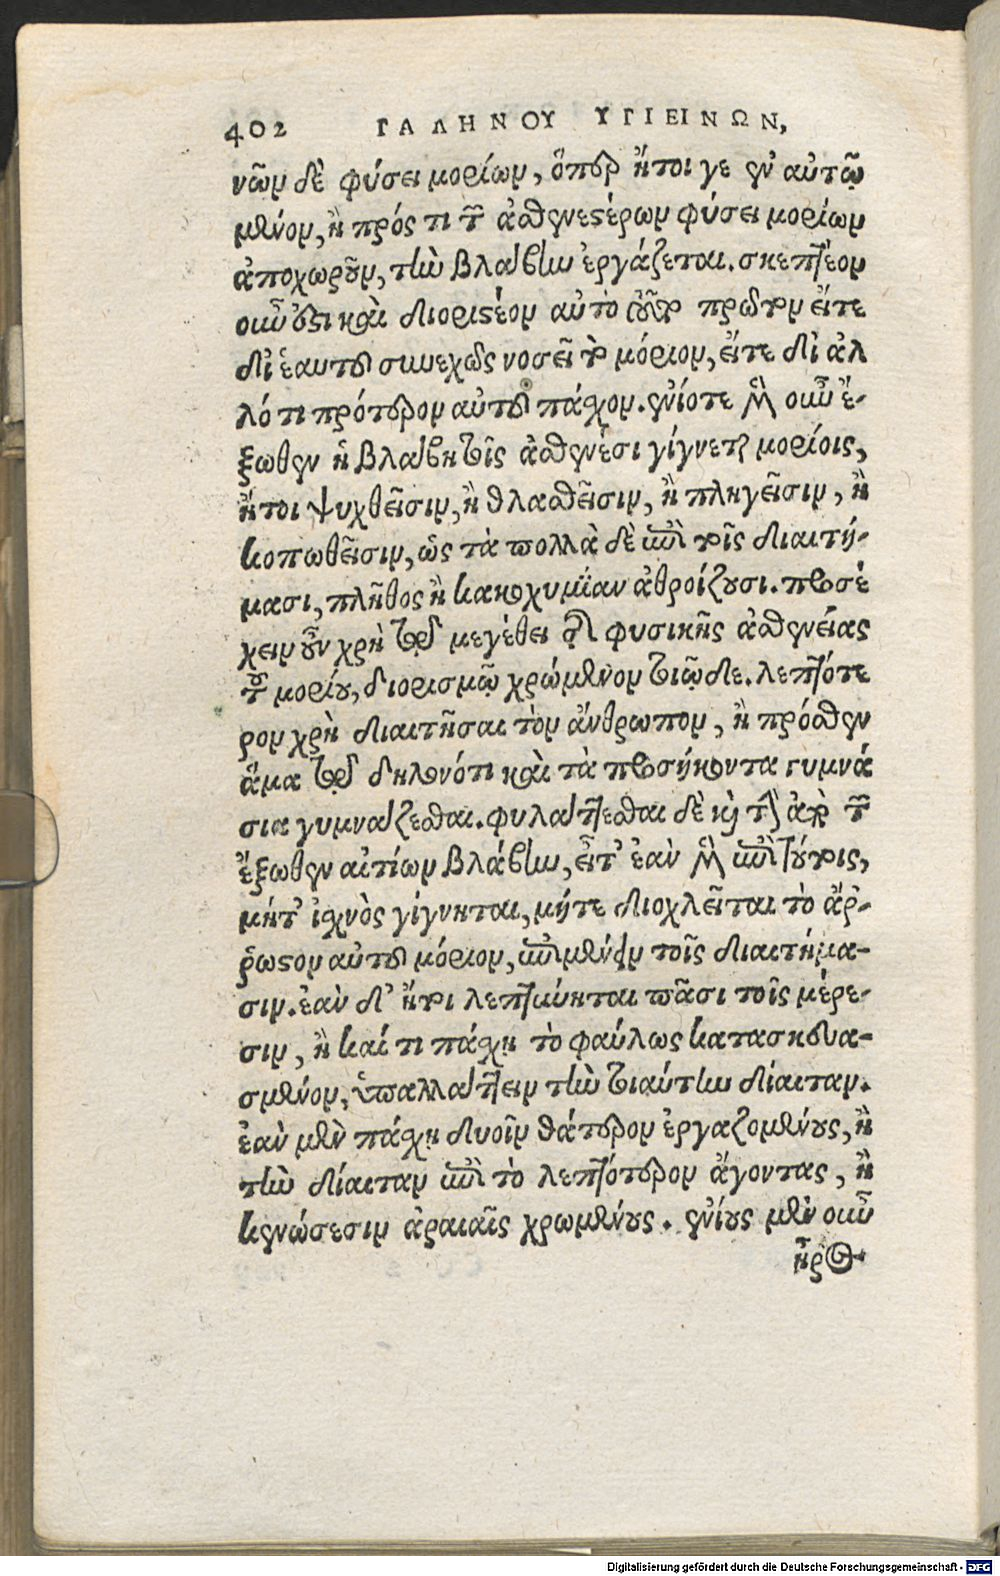 402 ΓΑΛΗΝΟΥ ΥΓΙΕΙΝΩΝ,
νῶν δὲ φύσει μορίων, ὅπερ ἤτοι γε ἐν αὐτῷ
μένον, ἢ πρός τι τῶν ἀσθενεστέρων φύσει μορίων
ἀποχωροῦν, τὴν βλάβην ἐργάζεται. σκεπτέον
οὖν ἔτι καὶ διοριστέον αὐτὸ πρότερον εἴτε
δι᾽ ἑαυτοῦ συνεχῶς νοσεῖ τὸ μόριον, εἴτε δι᾽ ἀλ
λό τι πρότερον αὐτοῦ πάσχον. ἐνίοτε μὲν οὖν ἔ-
ξωθεν ἡ βλάβη τοῖς ἀσθενέσι γίγνεται μορίοις,
ἤτοι ψυχθεῖσιν, ἢ θλασθεῖσιν, ἢ πληγεῖσιν, ἢ
κοπωθεῖσιν, ὡς τὰ πολλὰ δὲ ἐπὶ τοῖς διαιτή-
μασι, πλῆθος ἢ κακοχυμίαν ἀθροίζουσι. προσέ
χειν οὖν χρὴ τῷ μεγέθει τῆς φυσικῆς ἀσθενείας
τοῦ μορίου, διορισμῷ χρώμενον τοιῷδε. λεπτότε
ρον χρὴ διαιτῆσαι τὸν ἄνθρωπον, ἢ πρόσθεν
ἅμα τῷ δηλονότι καὶ τὰ προσήκοντα γυμνά
σια γυμνάζεσθαι. φυλάττεσθαι δὲ καὶ τὴν ἀπὸ τῶν
ἔξωθεν αἰτίων βλάβην, εἶτ᾽ ἐὰν μὲν ἐπὶ τούτοις,
μήτ᾽ ἰσχνὸς γίγνηται, μήτε διοχλεῖται τὸ ἄρ-
ρωστον αὐτοῦ μόριον, ἐπιμένειν τοῖς διαιτήμα-
σιν. ἐὰν δ᾽ ἤτοι λεπτύνηται πᾶσι τοῖς μέρε-
σιν, ἢ καί τι πάσχῃ τὸ φαύλως κατασκευα-
σμένον, ὑπαλλάττειν τὴν τοιαύτην δίαιταν.
ἐὰν μὲν πάσχῃ δυοῖν θάτερον ἐργαζομένους, ἢ
τὴν δίαιταν ἐπὶ τὸ λεπτότερον ἄγοντας, ἢ
κενώσεσιν ἀραιαῖς χρωμένους. ἐνίους μὲν οὖν
ἦρος
Digitalisierung gefördert durch die Deutsche Forschungsgemeinschaft - DFG